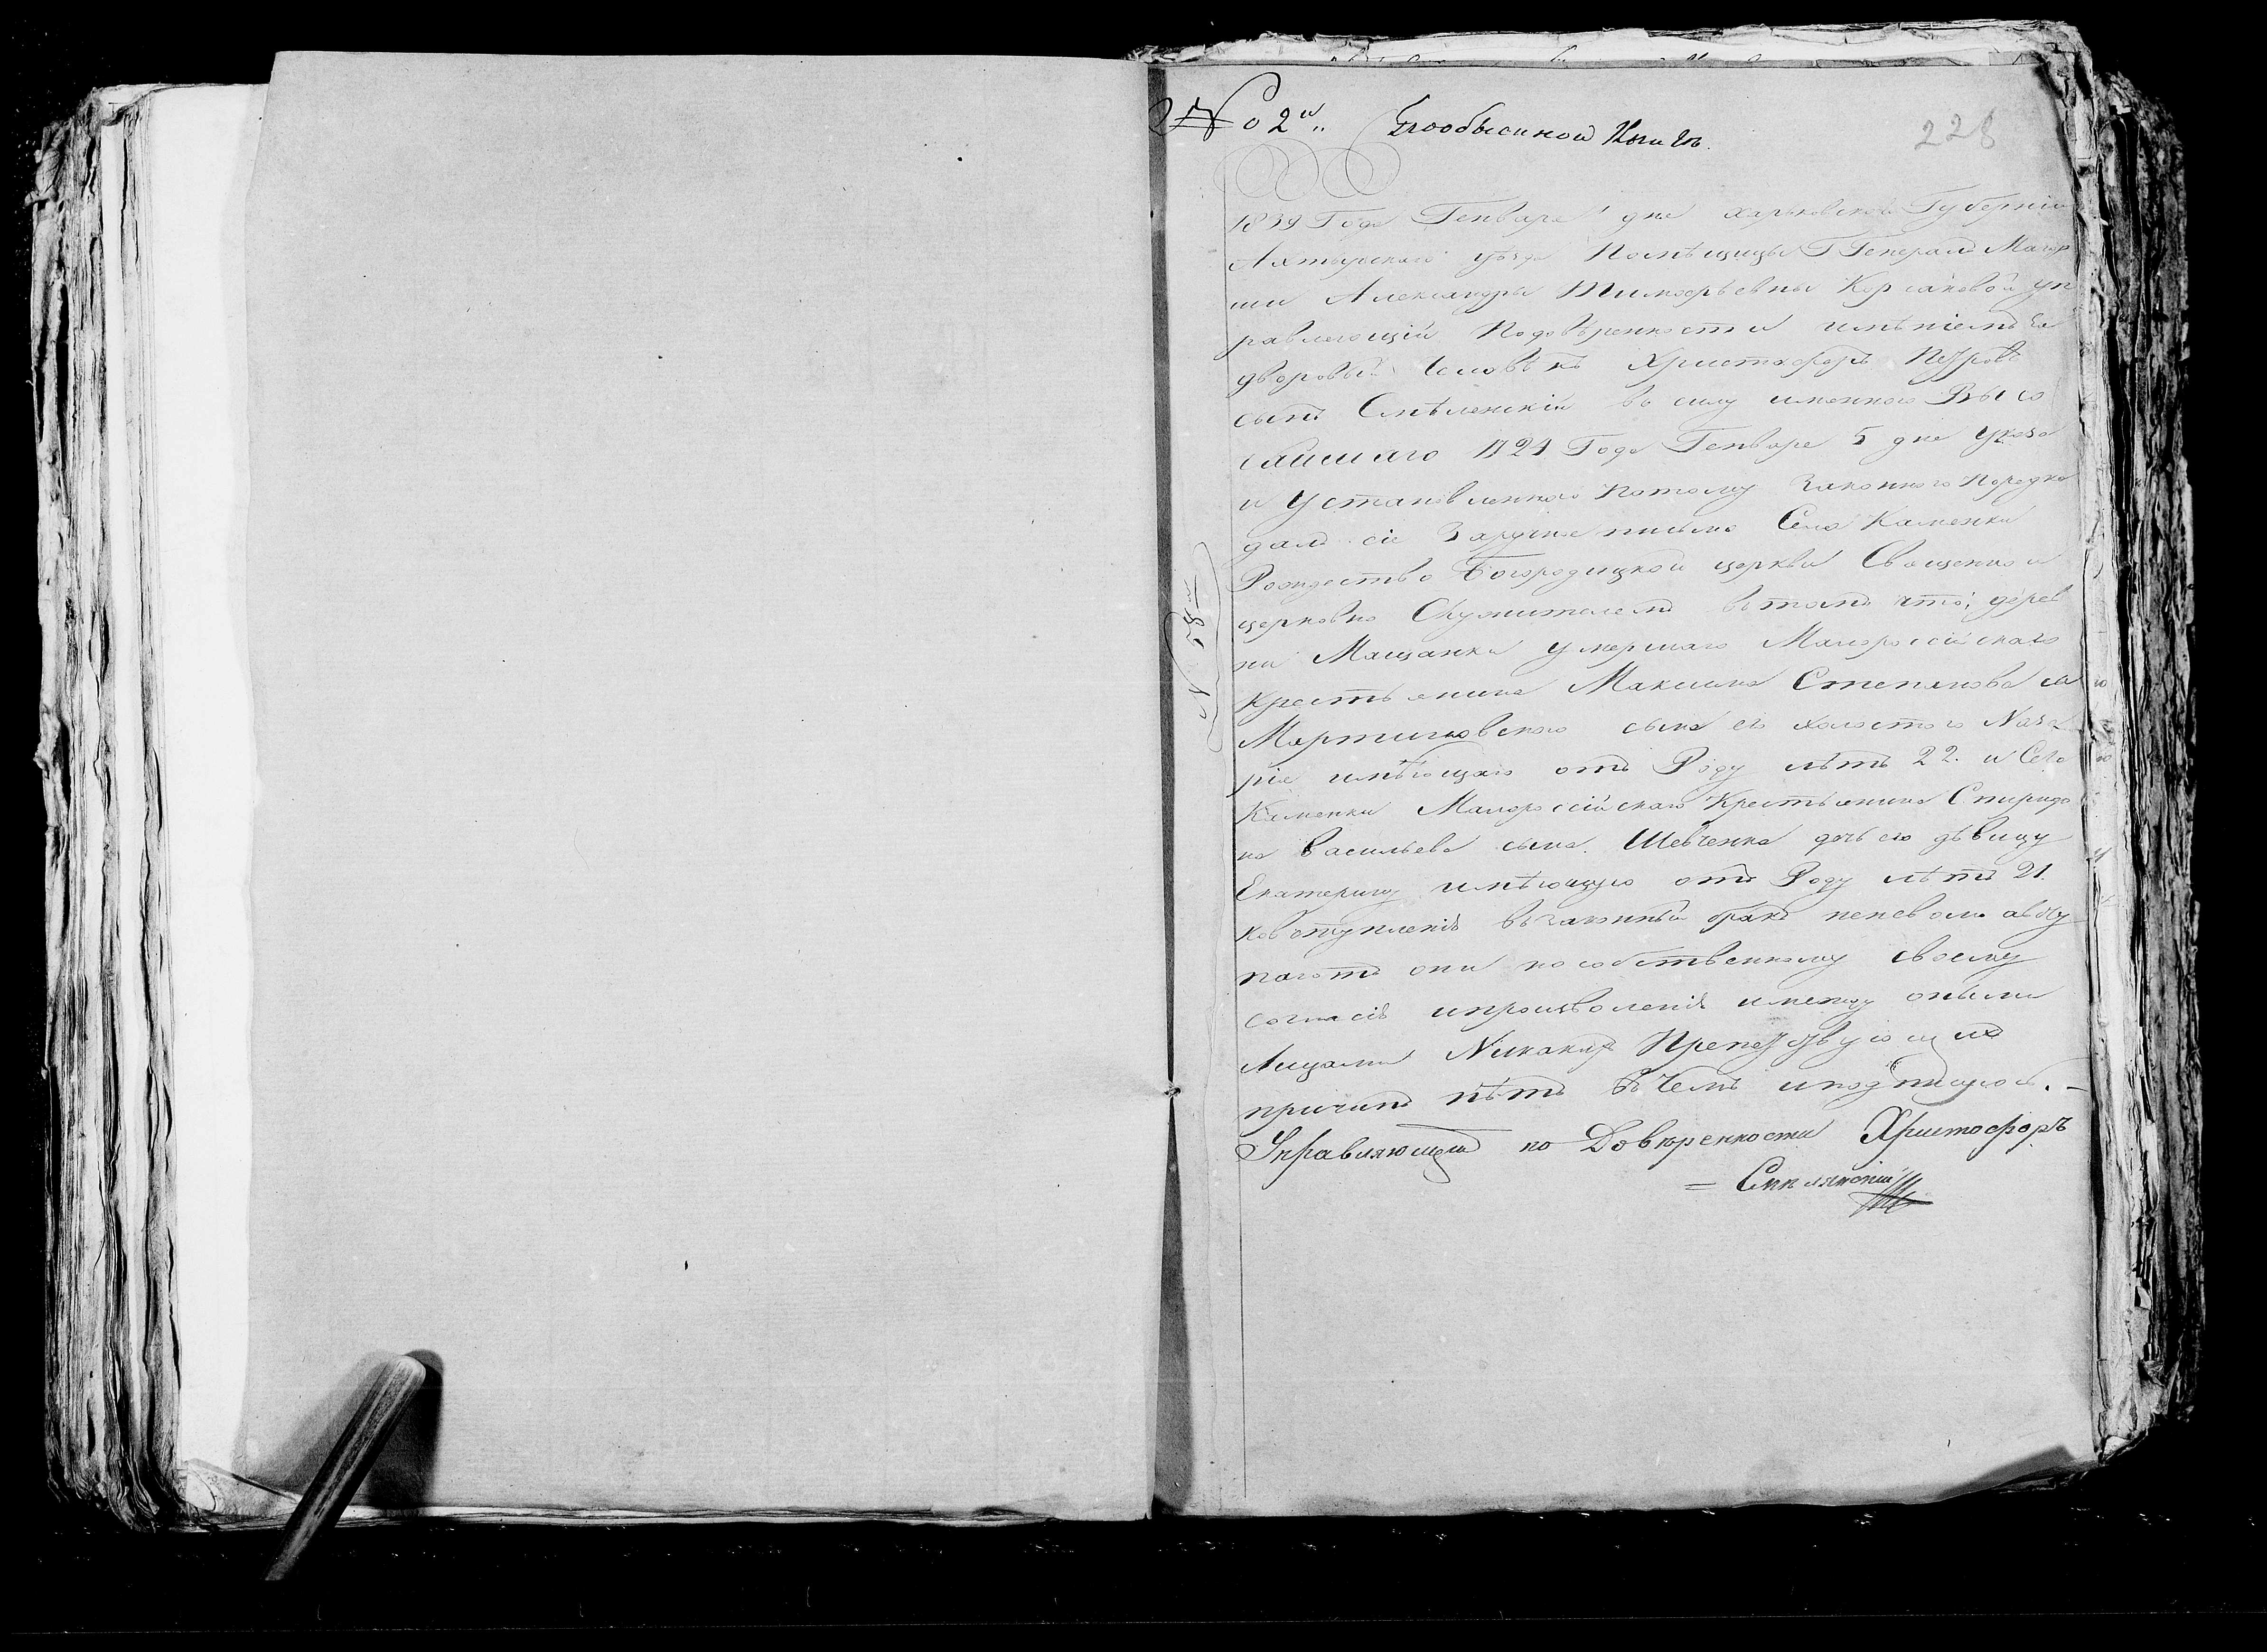 № 2й По обыскной книгѣ.
228
1839 Года Генваря дня Харьковской Губерніи
Ахтырскаго уѣзда Помѣщицы Генералъ Маіор
ши Александры Тимоѳѣевны Корсаковой уп
равляющій подовѣренности имѣніемъ Ея
дворовый человѣкъ Христофоръ Петровъ
сынъ Смѣлянскій въ силу именного Высо
чайшаго Года Генваря 5 дня указа
и установленнаго потому законнаго порядка
далъ сіе Заручне письмо Села Каменки
Рождество Богородицкой церкви Священно и
церковно Служителемъ втомъ что: дерев
ни Мащанки умершаго Малороссійскаго
крестьянина Максима Степанова
Мартиновского сына его холостого Наза
рія имѣющаго отъ Роду лѣтъ 22. и Села
Каменки Малороссійскаго Крестьянина Спиридо
на Васильева сына Шевченка дочь его дѣвицу
Екатерину имѣющую отъ Роду лѣтъ 21.
ковступленія взаконный бракъ неневоля австу
паютъ они пособственному своему
согласію ипроизволенію имежду оными
Лицами Никакихъ Препятствующихъ
причинъ нѣтъ въ чемъ иподпишусь. —
Управляющій по Довѣренности Христофоръ
= Смѣлянскій
№ 58й